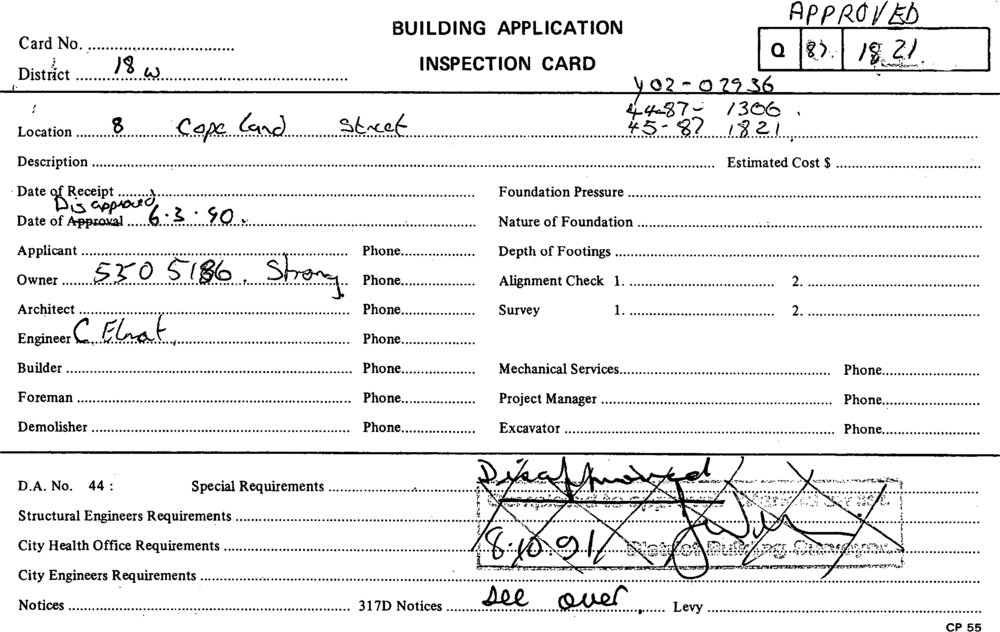 APPROVED
BUILDING APPLICATION
Card No.
Q 87. 18 21
District 18 W
INSPECTION CARD
Y02-02936
44-87- 1306
Location 8 Copeland Street 45-87 1821
Description Estimated Cost $
Date of Receipt Foundation Pressure
Disapproved
Date of Approval 6.3.90. Nature of Foundation
Applicant Phone Depth of Footings
Owner 530 5186. Strong Phone Alignment Check 1. 2.
Architect Phone Survey 1. 2.
Engineer C Phone
Builder Phone Mechanical Services Phone
Foreman Phone Project Manager Phone
Demolisher Phone Excavator Phone
Disapproved
D.A. No. 44 : Special Requirements
Structural Engineers Requirements
City Health Office Requirements 8.10.91 District Building Surveyor
City Engineers Requirements
Notices 317D Notices See over Levy
CP 55